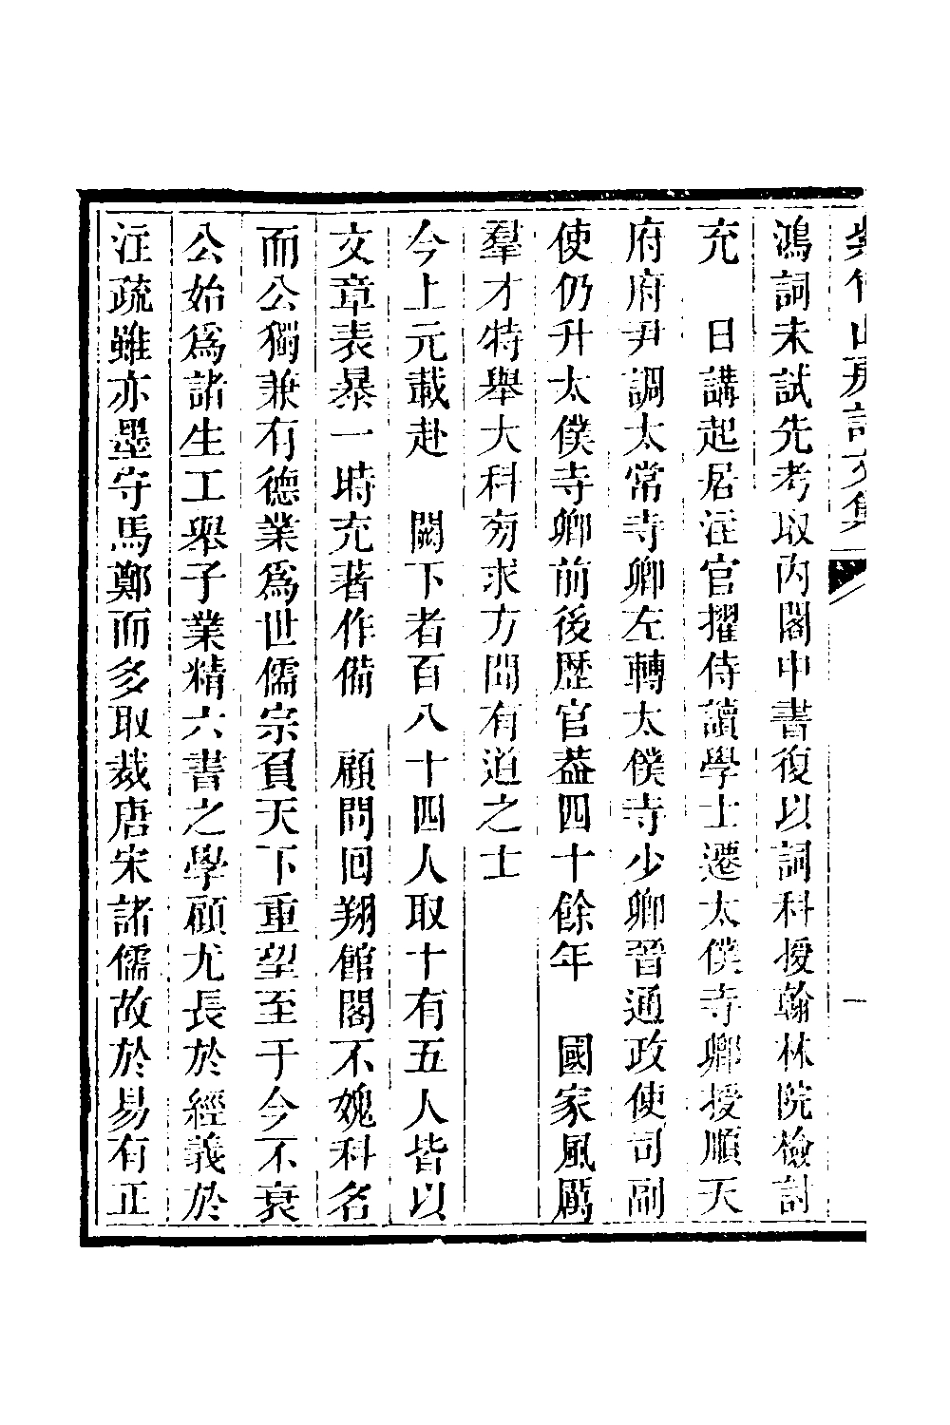 紫竹山房詩文集 一
鴻詞未試先考取內閣中書復以詞科授翰林院檢討
充　日講起居注官擢侍讀學士遷太僕寺卿授順天
府府尹調太常寺卿左轉太僕寺少卿晉通政使司副
使仍升太僕寺卿前後歷官葢四十餘年　國家風厲
羣才特舉大科旁求方聞有道之士
今上元載赴　闕下者百八十四人取十有五人皆以
文章表暴一時充著作備　顧問回翔館閣不媿科名
而公獨兼有德業爲世儒宗負天下重望至于今不衰
公始爲諸生工舉子業精六書之學顧尤長於經義於
注疏雖亦墨守馬鄭而多取裁唐宋諸儒故於易有正